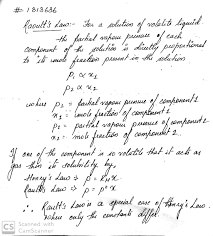 # 1813686
Raoult's Law:- For a solution of volatile liquid
the partial vapour pressure of each
component of the solution is directly proportional
to its mole fraction present in the solution
P₁ ∝ x₁
P₂ ∝ x₂
where P₁ = partial vapour pressure of component 1
x₁ = mole fraction of component 1
P₂ = partial vapour pressure of component 2
x₂ = mole fraction of component 2.
If one of the component is so volatile that it acts as
gas then its solubility by
Henry's Law ⇒ P = K_H x
Raoult's Law ⇒ P = P° x
∴ Raoult's Law is a special case of Henry's Law
where only the constants differ.
CS Scanned with
CamScanner